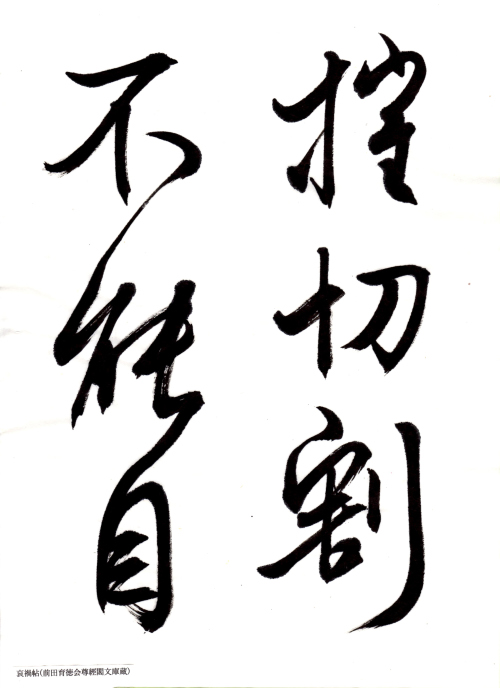 摧切割
不能自
哀禍帖(前田育徳会尊經閣文庫蔵)